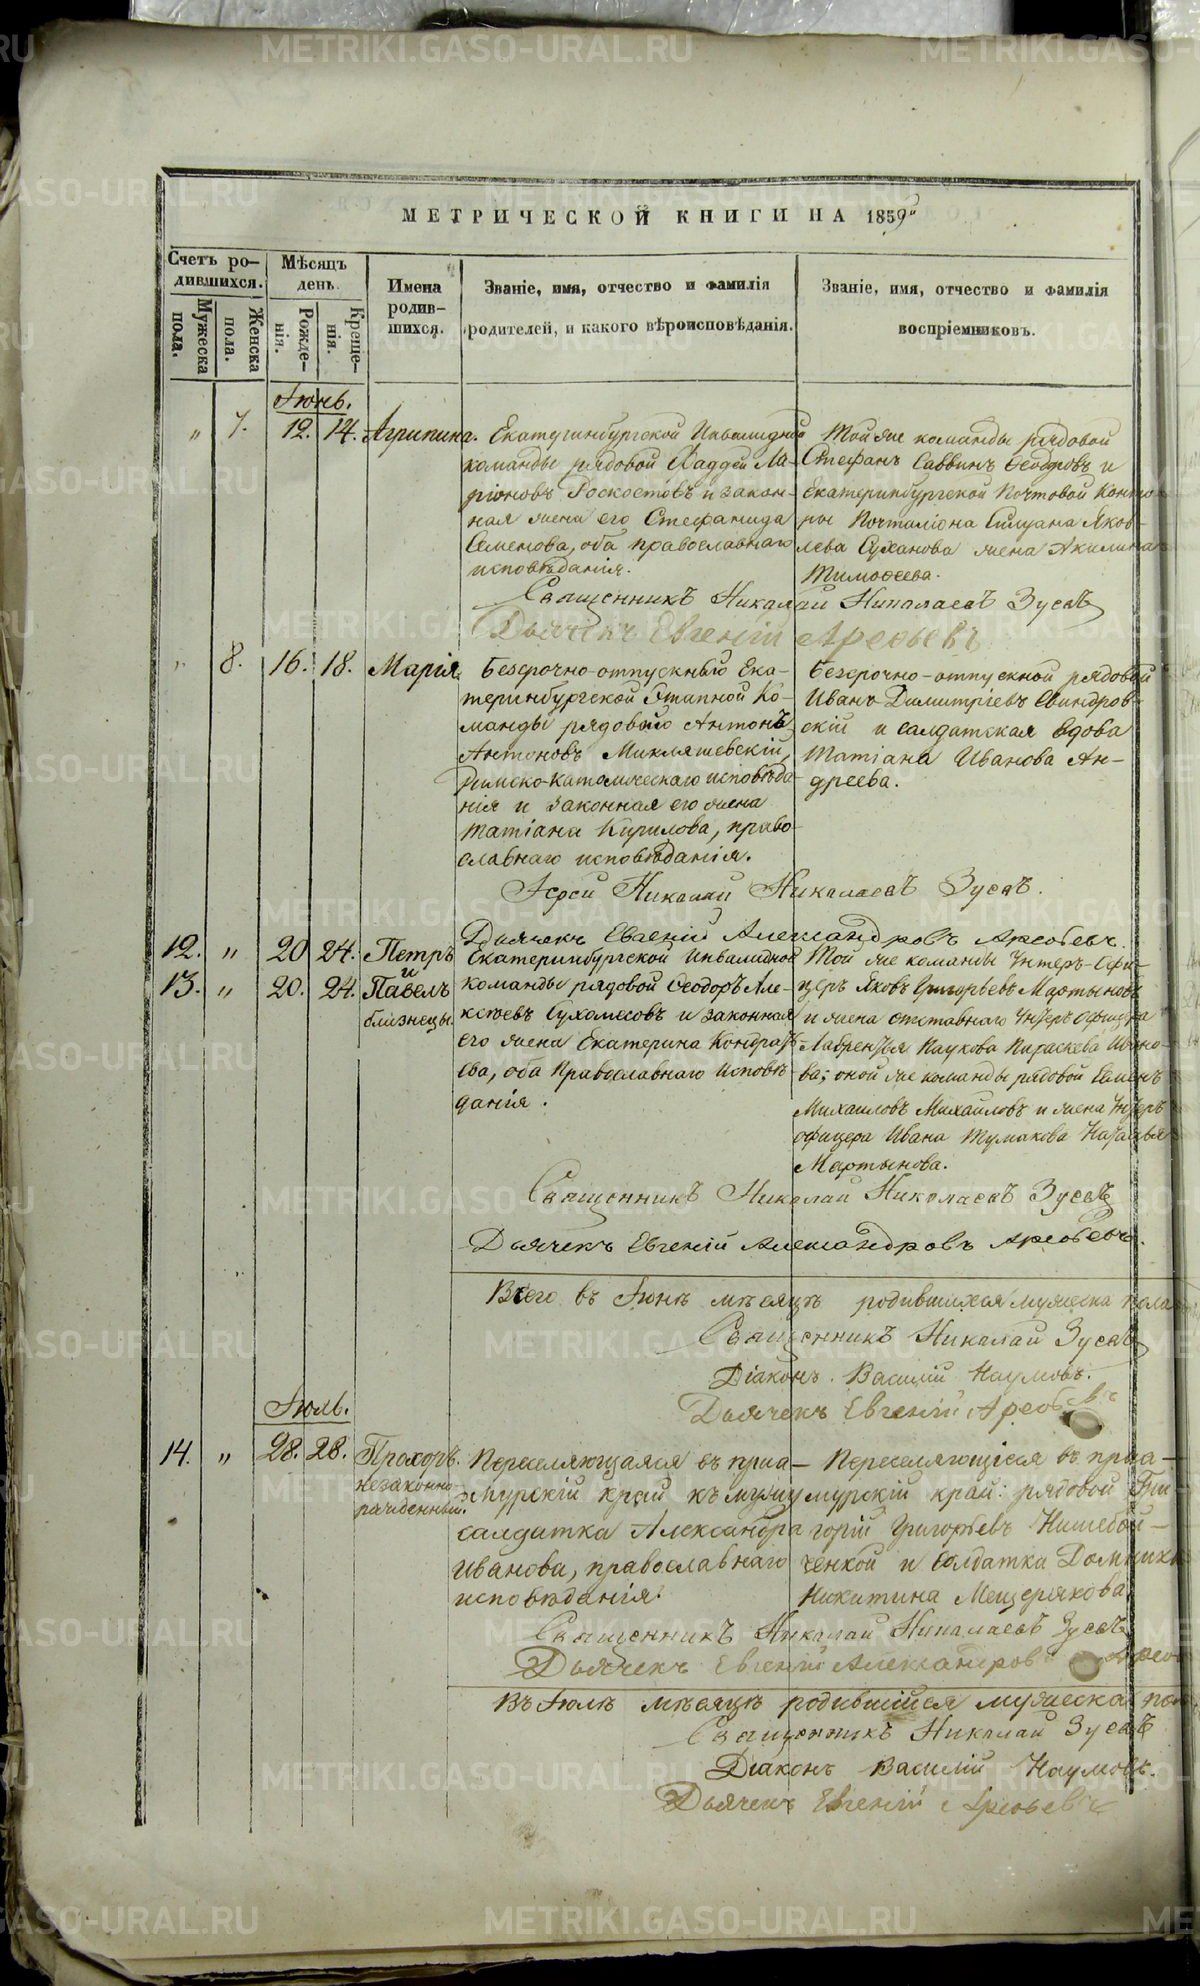 МЕТРИЧЕСКОЙ КНИГИ НА 1859
Счетъ ро-
дившихся.
Мѣсяцъ
день.
Имена
родив-
шихся.
Званіе, имя, отчество и фамилія
родителей, и какого вѣроисповѣданія.
Званіе, имя, отчество и фамилія
воспріемниковъ.
Мужеска
пола.
Женска
пола.
Рожде-
нія.
Креще-
нія.
Іюнь.
" 7. 12. 14. Агрипина.
Екатеринбургской Инвалидной
команды рядовой Фаддей Ла-
ріоновъ и закон-
ная жена его Стефанида
Семенова, оба православнаго
исповѣданія.
Той же команды рядовой
Стефанъ Саввинъ Ѳеодоровъ и
Екатеринбургской Почтовой Конто-
ры Почталіона Яков-
лева Суханова жена Акилина
Тимоѳеева.
Священникъ Николай Николаевъ Зуевъ
Дьячекъ Евгеній Арефьевъ
" 8. 16. 18. Марія.
Безсрочно-отпускный Ека-
теринбургской Этапной Ко-
манды рядовой Антонъ
Антоновъ Микляшевскій,
Римско-католическаго исповѣда-
нія и законная его жена
Татіана Кирилова, право-
славнаго исповѣданія.
Безсрочно-отпускной рядовой
Иванъ Димитріевъ Свидров-
скій и солдатская вдова
Татіана Иванова Ан-
дреева.
Іерей Николай Николаевъ Зуевъ.
Дьячекъ Евгеній Александровъ Арефьевъ.
12. " 20 24. Петръ
и
13. " 20. 24. Павелъ
близнецы.
Екатеринбургской Инвалидной
команды рядовой Ѳеодоръ Але-
ксѣевъ Сухолесовъ и законная
его жена Екатерина Кондрать-
ева, оба Православнаго Исповѣ-
данія.
Той же команды Унтеръ-Офи-
церъ Яковъ Григорьевъ Мартыновъ
и жена отставнаго Унтеръ Офицера
Лаврентья Паукова Параскева Ивано-
ва; оной же команды рядовой Семенъ
Михаиловъ Михайловъ и жена Унтеръ
офицера Ивана Тумакова Наталья
Мартынова.
Священникъ Николай Николаевъ Зуевъ
Дьячекъ Евгеній Александровъ Арефьевъ.
Всего въ Іюнѣ мѣсяцѣ родившихся мужеска пола
Священникъ Николай Зуевъ
Діаконъ Василій Наумовъ.
Дьячекъ Евгеній Арефьевъ
Іюль.
14. " 28. 28. Прохоръ.
незаконно-
рожденный.
Переселяющаяся въ приа-
мурскій край къ мужу
салдатка Александра
Иванова, православнаго
исповѣданія.
Переселяющіеся въ приа-
мурскій край: рядовой Гри-
горій Григорьевъ
и солдатка Домника
Никитина Мещерякова.
Священникъ Николай Николаевъ Зуевъ
Дьячекъ Евгеній Александровъ
Въ Іюлѣ мѣсяцѣ родившійся мужеска пола
Священникъ Николай Зуевъ
Діаконъ Василій Наумовъ.
Дьячекъ Евгеній Арефьевъ
METRIKI.GASO-URAL.RU